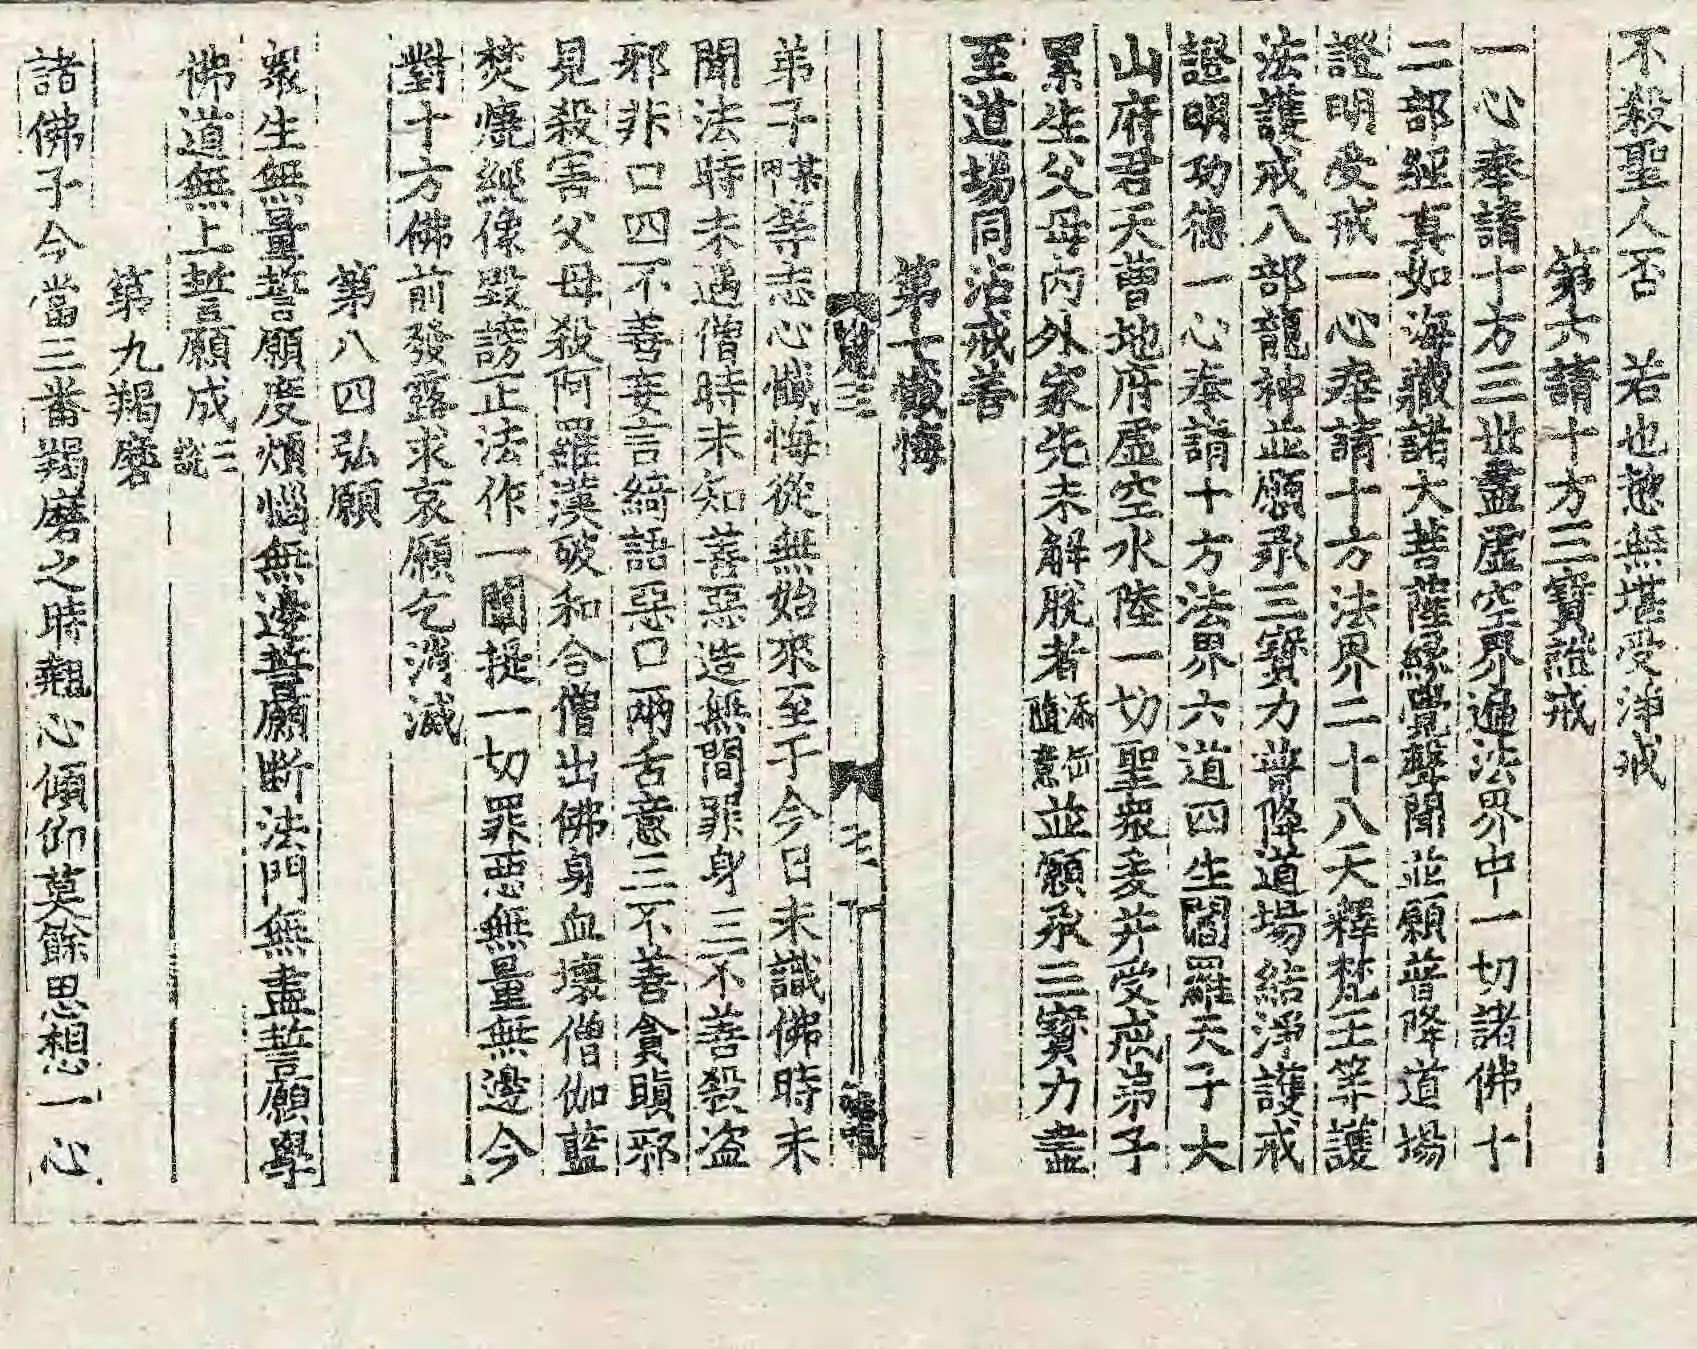 不殺聖人否　若也愆無堪受淨戒
第六請十方三寶證戒
一心奉請十方三世盡虛空界遍法界中一切諸佛十
二部經真如海藏諸大菩薩緣覺聲聞並願普降道場
證明受戒一心奉請十方法界二十八天釋梵王等護
法護戒八部龍神並願承三寶力普降道場結淨護戒
證明功德一心奉請十方法界六道四生閻羅天子大
山府君天曹地府虛空水陸一切聖眾來并受戒弟子
累生父母內外家先未解脫者添亡隨意並願承三寶力盡
至道場同沾戒善
第七懺悔
弟子某甲等志心懺悔從無始來至于今日未識佛時未
聞法時未遇僧時未知善惡造無間罪身三不善殺盜
邪非口四不善妄言綺語惡口兩舌意三不善貪瞋邪
見殺害父母殺阿羅漢破和合僧出佛身血壞僧伽藍
焚燒經像毀謗正法作一闡提一切罪惡無量無邊今
對十方佛前發露求哀願乞消滅
第八四弘願
眾生無量誓願度煩惱無邊誓願斷法門無盡誓願學
佛道無上誓願成三說
第九羯磨
諸佛子今當三番羯磨之時翹心傾仰莫餘思想一心